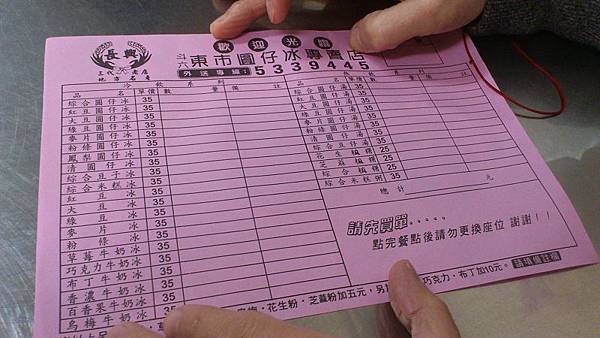 歡迎光臨
長興
三代老店
地方名產
斗六
東市圓仔冰專賣店
外送專線:5339445
冷飲系列
品名 單價 數量 備註
綜合圓仔冰 35
紅豆圓仔冰 35
大豆圓仔冰 35
綠豆圓仔冰 35
麥片圓仔冰 35
粉條圓仔冰 35
鳳梨圓仔冰 35
清圓仔冰 35
綜合豆子冰 35
綜合米糕冰 35
紅豆冰 35
大豆冰 35
綠豆冰 35
麥片冰 35
粉條冰 35
草莓牛奶冰 35
巧克力牛奶冰 35
布丁牛奶冰 35
香濃牛奶冰 35
百香果牛奶冰 35
烏梅牛奶冰 35
品名 單價 數量 備註
綜合圓仔湯 35
紅豆圓仔湯 35
大豆圓仔湯 35
綠豆圓仔湯 35
麥片圓仔湯 35
粉條圓仔湯 35
清圓仔湯 35
綜合豆仔湯 35
花生麻糬 25
芝麻麻糬 25
綜合麻糬 25
綜合米糕粥 35
總計 元
請先買單.....
點完餐點後請勿更換座位 謝謝!!
花生粉.芝麻粉加五元,另加
巧克力.布丁加10元。
請填備註欄